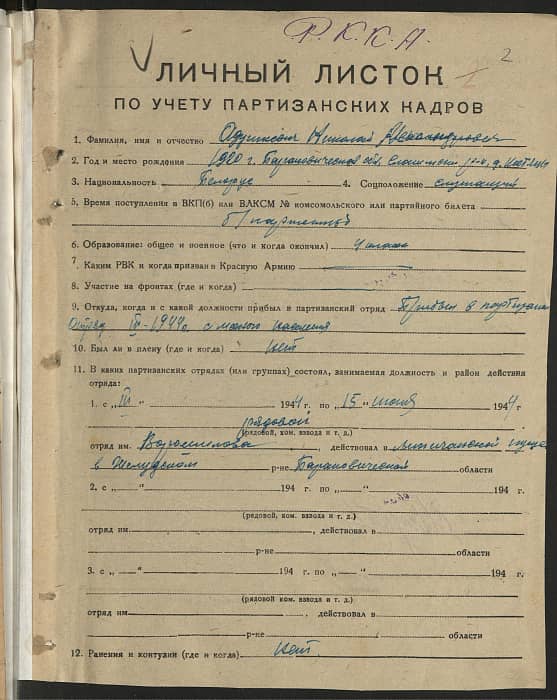 Р. К. К. А.
2
ЛИЧНЫЙ ЛИСТОК
ПО УЧЕТУ ПАРТИЗАНСКИХ КАДРОВ
1. Фамилия, имя и отчество Николай Александрович
2. Год и место рождения 1920 г. Барановическая обл. р-н, д.
3. Национальность Белорус 4. Соцположение служащий
5. Время поступления в ВКП(б) или ВЛКСМ № комсомольского или партийного билета
б/партейный
6. Образование: общее и военное (что и когда окончил) 4 класса
7. Каким РВК и когда призван в Красную Армию
8. Участие на фронтах (где и когда)
9. Откуда, когда и с какой должности прибыл в партизанский отряд Прибыл в партизан
отряд 1944 г. с населения
10. Был ли в плену (где и когда) нет
11. В каких партизанских отрядах (или группах) состоял, занимаемая должность и район действия
отряда:
1. с „ III “ 1944 г. по „ 15 “ июля 1944 г.
рядовой
(рядовой, ком. взвода и т. д.)
отряд им. Ворошилова, действовал в Липичанской пуще
в р-не Барановической области
2. с „ — “ 194 г. по „ — “ 194 г.
(рядовой, ком. взвода и т. д.)
отряд им. , действовал в
р-не области
3. с „ — “ 194 г. по „ — “ 194 г.
(рядовой, ком. взвода и т. д.)
отряд им. , действовал в
р-не области
12. Ранения и контузии (где и когда) нет.